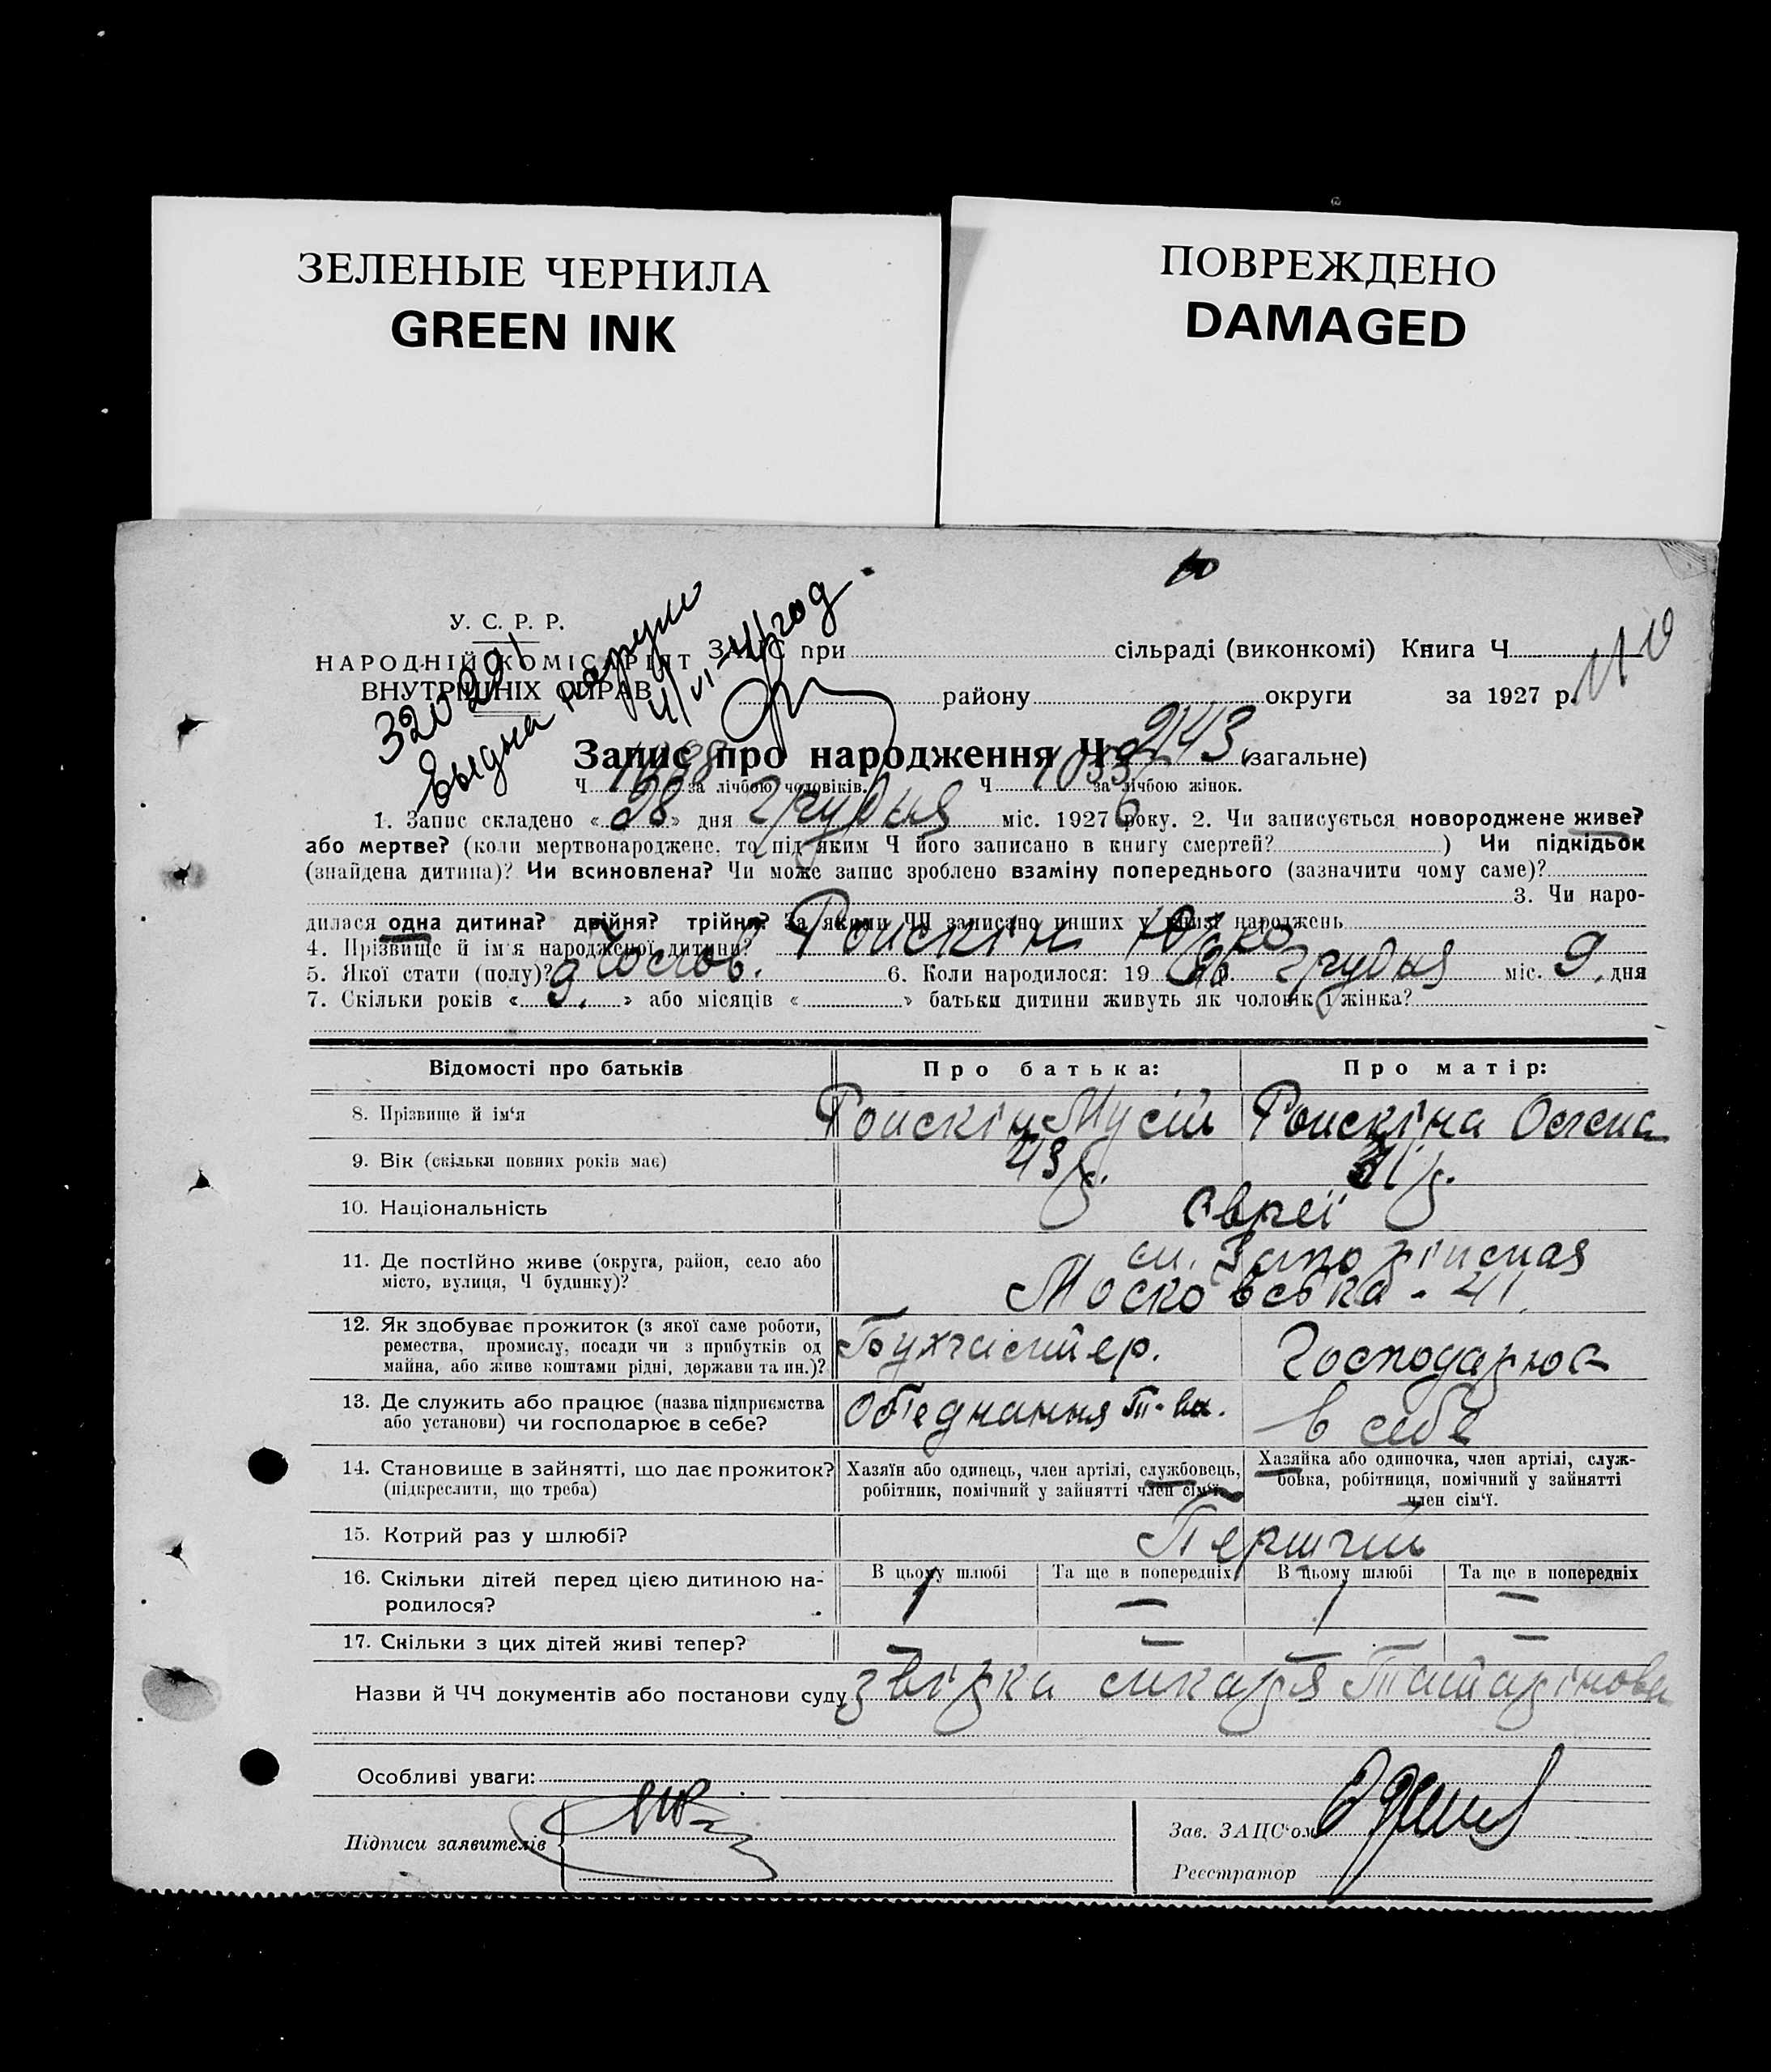 ЗЕЛЕНЫЕ ЧЕРНИЛА
GREEN INK
ПОВРЕЖДЕНО
DAMAGED
У. С. Р. Р.
НАРОДНІЙ КОМІСАРІЯТ
ВНУТРІШНІХ СПРАВ
ЗАЦС при сільраді (виконкомі) Книга Ч
району округи за 1927 р.
Запис про народження Ч 2143 (загальне)
Ч за лічбою чоловіків. Ч 1055 за лічбою жінок.
1. Запис складено «28» дня грудня міс. 1927 6 року. 2. Чи записується новороджене живе?
або мертве? (коли мертвонароджене, то під яким Ч його записано в книгу смертей? ) Чи підкідьок
(знайдена дитина)? Чи всиновлена? Чи може запис зроблено взаміну попереднього (зазначити чому саме)?
3. Чи наро-
дилася одна дитина? двійня? трійня? За якими ЧЧ записано инших у книзі народжень
4. Прізвище й ім'я народженої дитини?
5. Якої стати (полу)? 6. Коли народилося: 19 26 р. грудня міс. 9. дня
7. Скільки років « 9. » або місяців « » батьки дитини живуть як чоловік і жінка?
Відомості про батьків Про батька: Про матір:
8. Прізвище й ім'я Мусій
9. Вік (скільки повних років має) 43 р. 31 р.
10. Національність євреї
11. Де постійно живе (округа, район, село або
місто, вулиця, Ч будинку)?
Московська - 41.
12. Як здобуває прожиток (з якої саме роботи,
ремества, промислу, посади чи з прибутків од
майна, або живе коштами рідні, держави та ин.)?
Бухгалтер. Господарює
13. Де служить або працює (назва підприємства
або установи) чи господарює в себе?
Об'єднання т-ва. в себе
14. Становище в зайнятті, що дає прожиток?
(підкреслити, що треба)
Хазяїн або одинець, член артілі, службовець,
робітник, помічний у зайнятті член сім'ї.
Хазяйка або одиночка, член артілі, служ-
бовка, робітниця, помічний у зайнятті
член сім'ї.
15. Котрий раз у шлюбі? Перший
16. Скільки дітей перед цією дитиною на-
родилося?
В цьому шлюбі Та ще в попередніх В цьому шлюбі Та ще в попередніх
1 — 1 —
17. Скільки з цих дітей живі тепер? — — — —
Назви й ЧЧ документів або постанови суду звізка лікаря
Особливі уваги:
Підписи заявителів
Зав. ЗАЦС'ом
Реєстратор